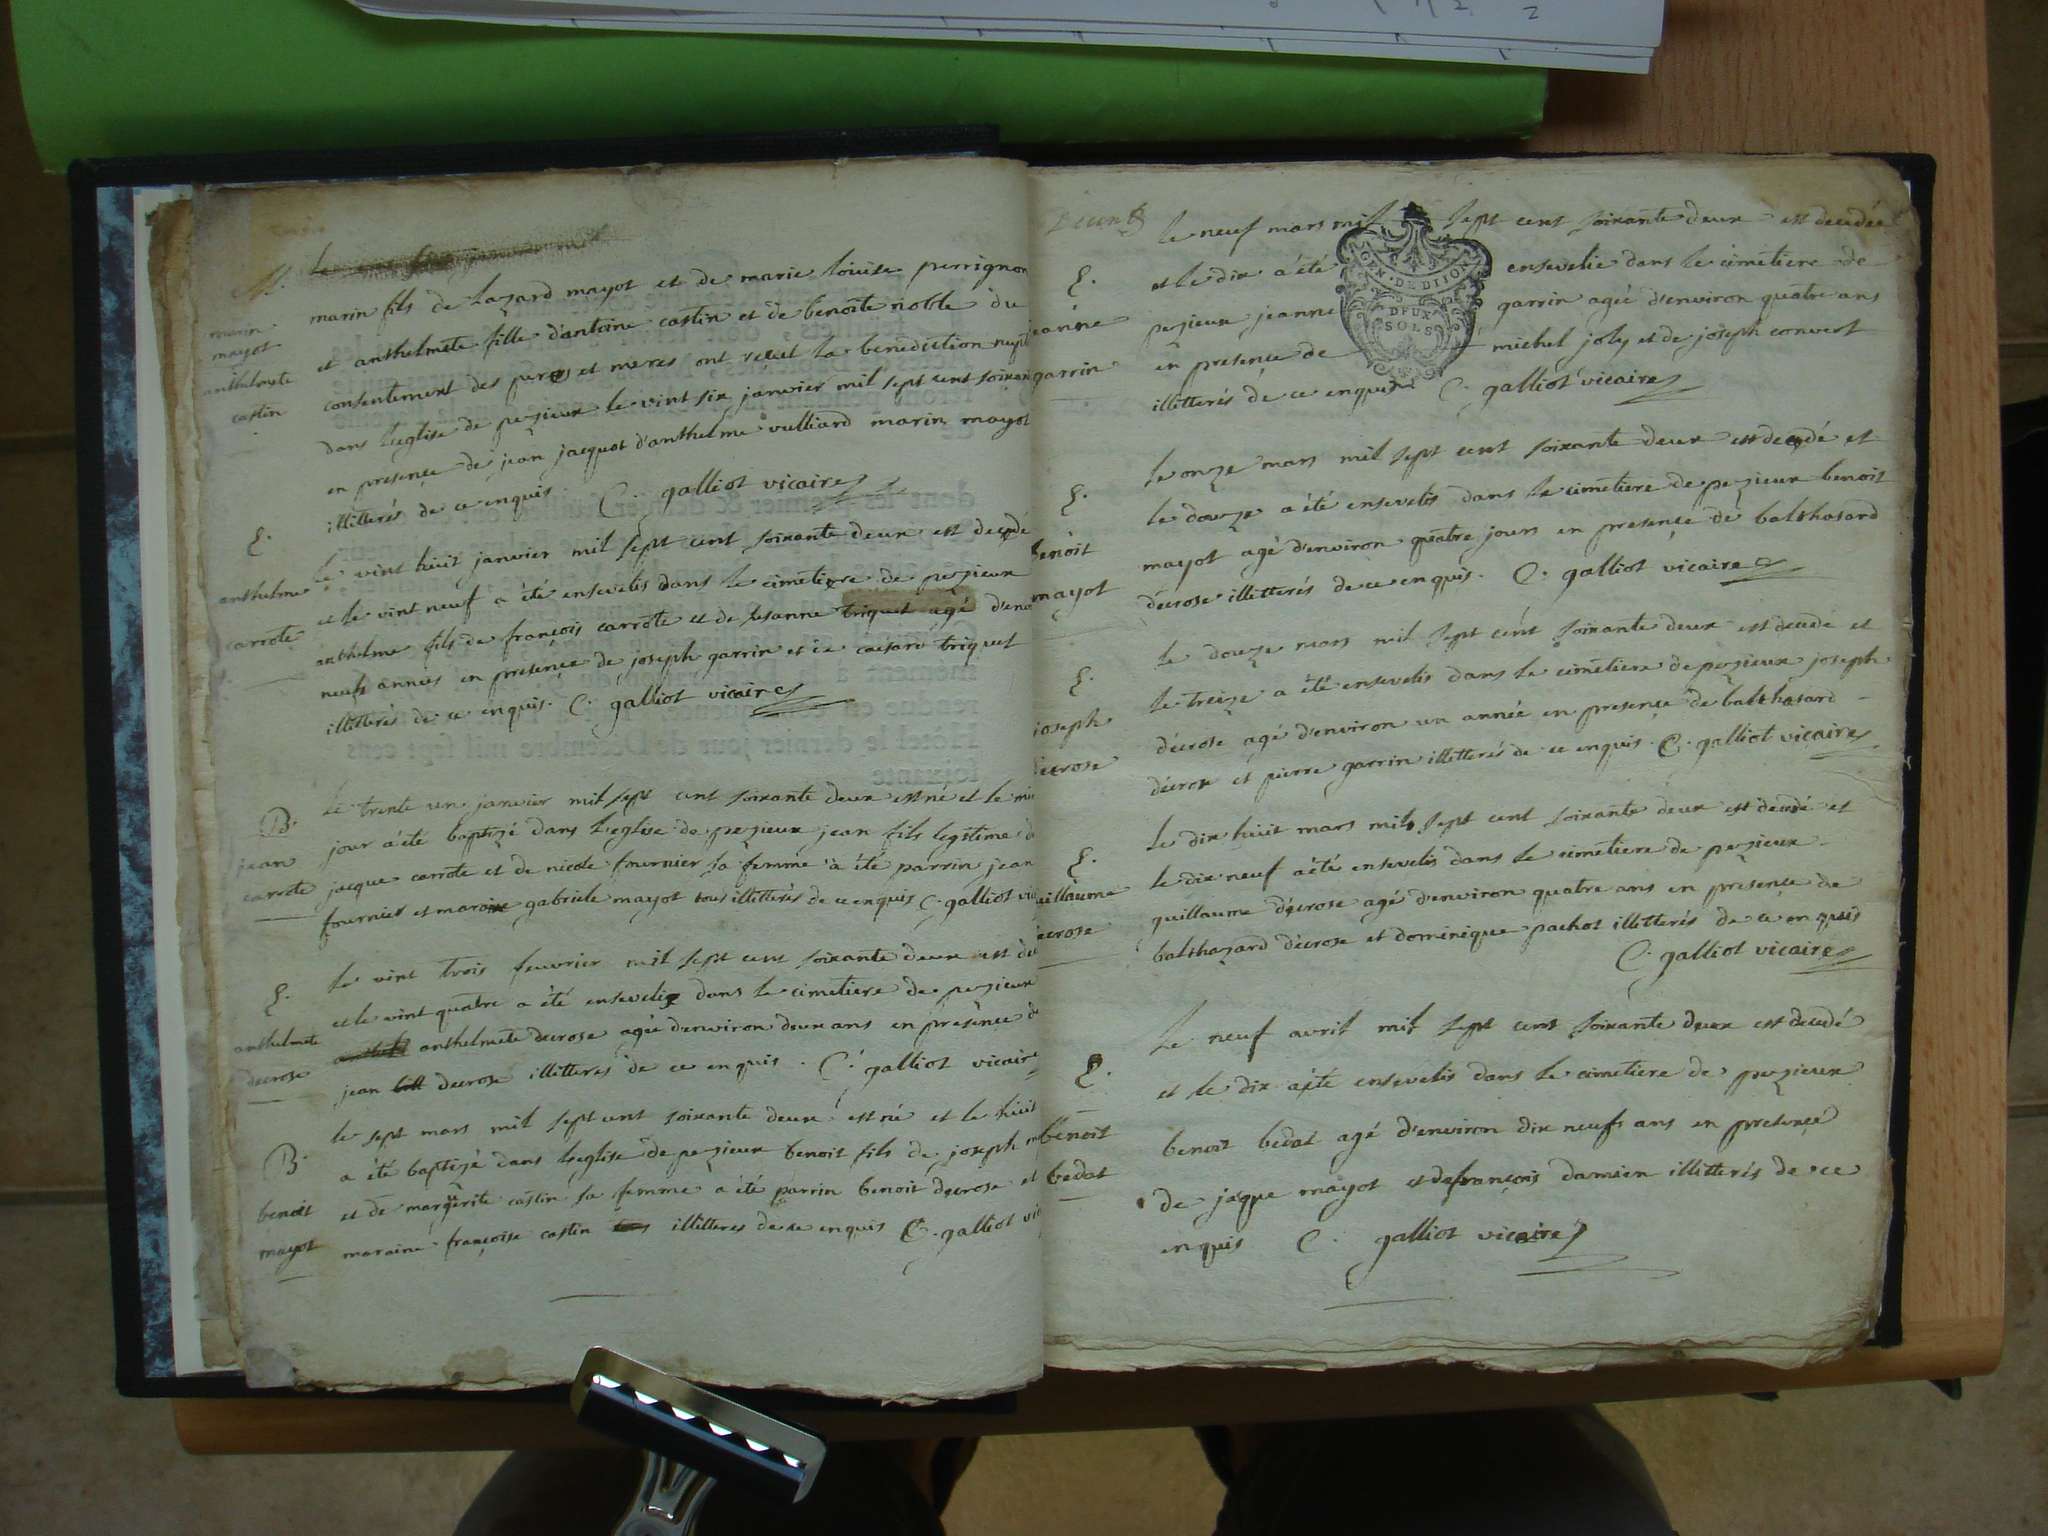 M.
marin
mayot
anthelmete
castin
marin fils de lazard mayot et de marie louise perrignon
et anthelmete fille d'antoine castin et de benoite noble du
consentement des peres et meres ont receu la benediction nupt
dans l'eglise de pezieux le vint six janvier mil sept cent soixan
en presence de jean jacquot d'anthelme vulliard marin mayot
illitterés de ce enquis. C. galliot vicaire
E.
anthelme
carrote
le vint huit janvier mil sept cent soixante deux est decedé
et le vint neuf a été ensevelis dans le cimetiere de pezieux
anthelme fils de françois carrote et de susanne triquet agé d'env
neufs années en presence de joseph garrin et de caesard triquet
illitterés de ce enquis. C. galliot vicaire
B.
jean
carrote
le trente un janvier mil sept cent soixante deux est né et le mê
jour a été baptizé dans l'eglise de pezieux jean fils legitime d
jacque carrote et de nicole fournier sa femme a été parrin jean
fournier et maraine gabriele mayot tous illitterés de ce enquis C. galliot vic
E.
anthelmete
decrose
le vint trois feuvrier mil sept cent soixante deux est dec
et le vint quatre a été ensevelie dans le cimetiere de pezieux
anthelmete decrose agée denviron deux ans en presence de
jean decrose illitteres de ce enquis. C. galliot vicaire
B.
benoit
mayot
le sept mars mil sept cent soixante deux est né et le huit
a été baptizé dans l'eglise de pezieux benoit fils de joseph m
et de margerite castin sa femme a été parrin benoit decrose et
maraine françoise castin illitteres de ce enquis C. galliot vic
E.
jeanne
garrin
le neuf mars mil sept cent soixante deux est decedée
et le dix a été ensevelie dans le cimetiere de
pezieux jeanne garrin agée d'environ quatre ans
en presence de michel joly et de joseph convert
illitterés de ce enquis C. galliot vicaire
GEN. DE DIJON
DEUX
SOLS
E.
benoit
mayot
le onze mars mil sept cent soixante deux est decedé et
le douze a été ensevelis dans le cimetiere de pezieux benoit
mayot agé d'environ quatre jours en presence de balthasard
décrose illitterés de ce enquis. C. galliot vicaire
E.
joseph
decrose
le douze mars mil sept cent soixante deux est decedé et
le treize a été ensevelis dans le cimetiere de pezieux joseph
décrose agé d'environ un année en presence de balthasard
décrose et pierre garrin illitterés de ce enquis. C. galliot vicaire
E.
guillaume
decrose
le dix huit mars mil sept cent soixante deux est decedé et
le dix neuf a été ensevelis dans le cimetiere de pezieux
guillaume décrose agé d'environ quatre ans en presence de
balthazard décrose et dominique pachot illitterés de ce enquis
C. galliot vicaire
E.
benoit
bedat
Le neuf avril mil sept cent soixante deux est decedé
et le dix a été ensevelis dans le cimetiere de pezieux
benoit bedat agé d'environ dix neufs ans en presence
de jaque mayot et de françois damien illitterés de ce
enquis C. galliot vicaire